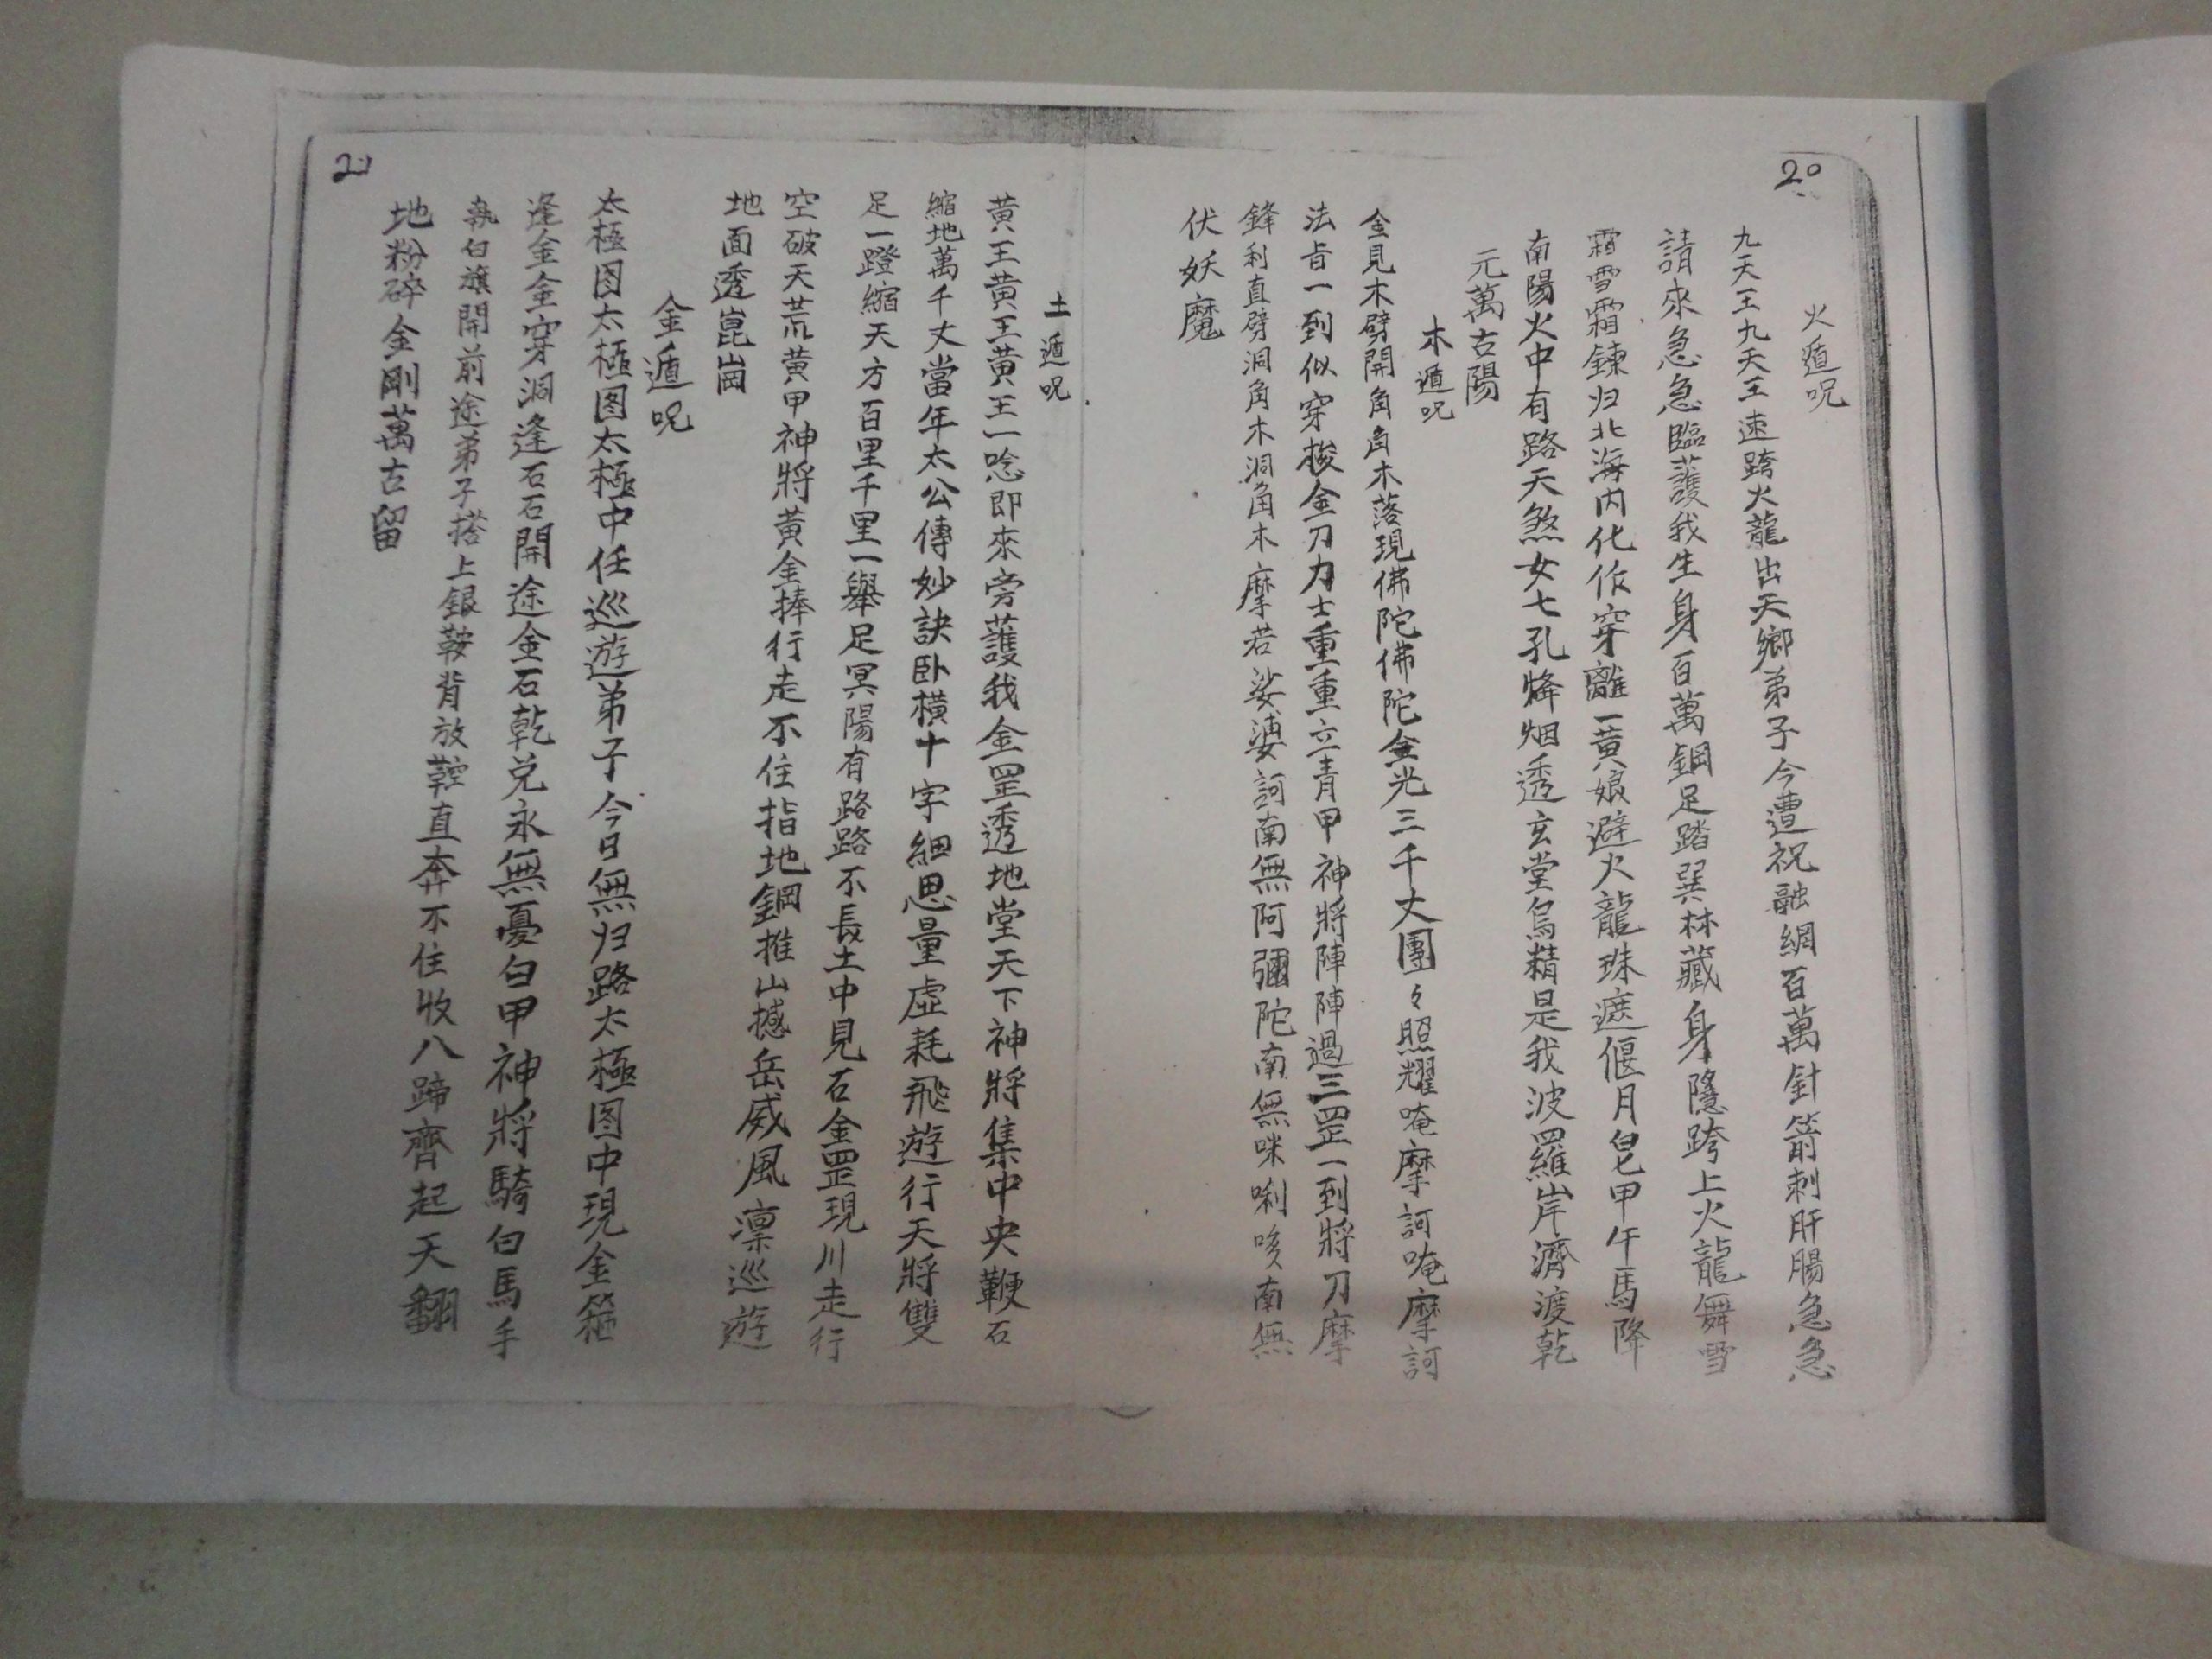 20
火遁呪
九天王九天王速跨火龍出天鄉弟子今遭祝融網百萬針箭刺肝腸急急
請來急急臨護我生身百萬鋼足踏巽林藏身隱跨上火龍舞雪
霜雪霜鍊归北海内化作穿離一黃娘避火龍珠遮偃月皂甲午馬降
南陽火中有路天煞女七孔烽烟透玄堂烏精是我波羅岸濟渡乾
元萬古陽
木遁呪
金見木劈開角角木落現佛陀佛陀金光三千丈團々照耀唵摩訶唵摩訶
法旨一到似穿梭金刀力士重重立青甲神將陣陣過三罡一到將刀摩
鋒利直劈洞角木洞角木摩若娑婆訶南無阿彌陀南無咪唎唆南無
伏妖魔
土遁呪
黃王黃王黃王一唸即來旁護我金罡透地堂天下神將集中央鞭石
縮地萬千丈當年太公傳妙訣卧橫十字細思量虛耗飛遊行天將雙
足一蹬縮天方百里千里一舉足冥陽有路路不長土中見石金罡現川走行
空破天荒黃甲神將黃金捧行走不住指地鋼推山撼岳威風凛巡遊
地面透崑崗
金遁呪
太極图太極图太極中任巡遊弟子今日無归路太極图中現金箍
逢金金穿洞逢石石開途金石乾兑永無憂白甲神將騎白馬手
執白旗開前途弟子搭上銀鞍背放鞚直奔不住收八蹄齊起天翻
地粉碎金剛萬古留
21